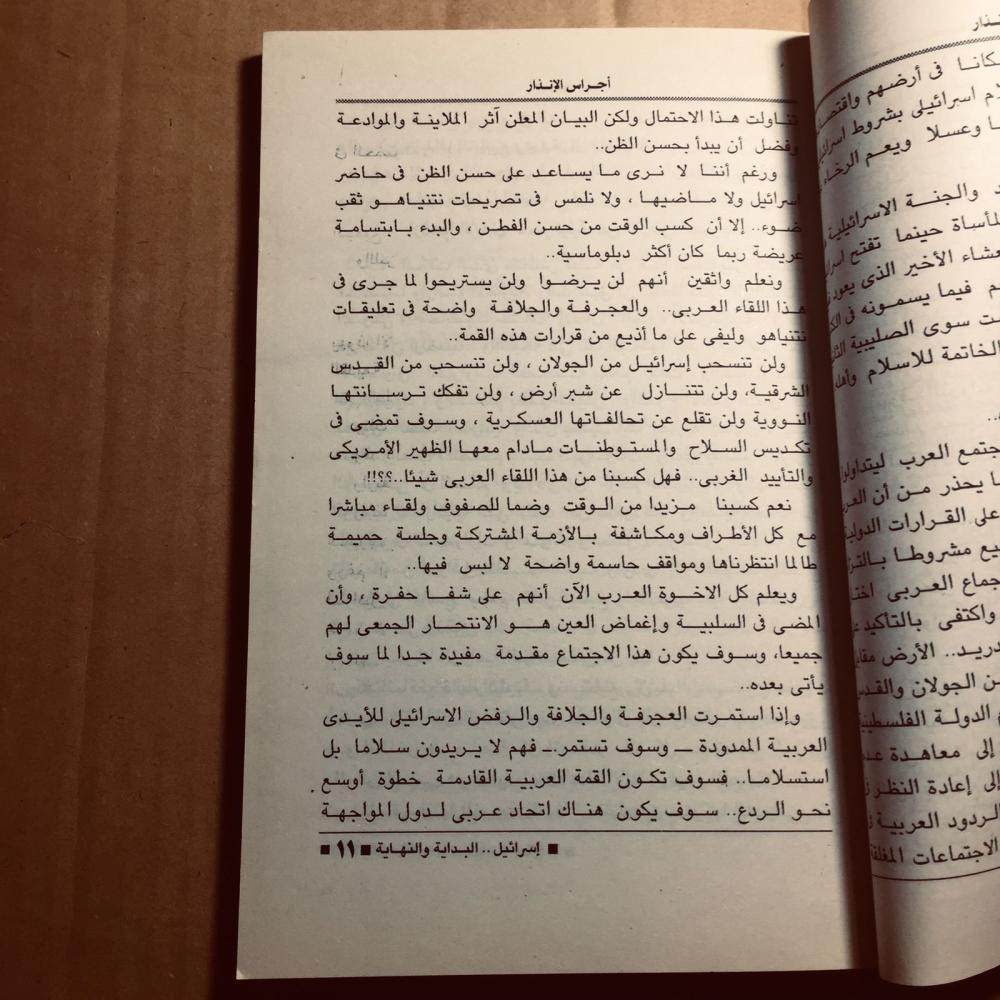 أجراس الإنذار
تناولت هذا الاحتمال ولكن البيان المعلن آثر الملاينة والموادعة
وفضل أن يبدأ بحسن الظن..
ورغم أننا لا نرى ما يساعد على حسن الظن فى حاضر
اسرائيل ولا ماضيها ، ولا نلمس فى تصريحات نتنياهو ثقب
ضوء.. إلا أن كسب الوقت من حسن الفطن ، والبدء بابتسامة
عريضة ربما كان أكثر دبلوماسية..
ونعلم واثقين أنهم لن يرضوا ولن يستريحوا لما جرى فى
هذا اللقاء العربى.. والعجرفة والجلافة واضحة فى تعليقات
نتنياهو وليفى على ما أذيع من قرارات هذه القمة..
ولن تنسحب إسرائيل من الجولان ، ولن تنسحب من القدس
الشرقية، ولن تتنازل عن شبر أرض ، ولن تفكك ترسانتها
النووية ولن تقلع عن تحالفاتها العسكرية ، وسوف تمضى فى
تكديس السلاح والمستوطنات مادام معها الظهير الأمريكى
والتأييد الغربى.. فهل كسبنا من هذا اللقاء العربى شيئا..؟؟!!
نعم كسبنا مزيدا من الوقت وضما للصفوف ولقاء مباشرا
مع كل الأطراف ومكاشفة بالأزمة المشتركة وجلسة حميمة
طالما انتظرناها ومواقف حاسمة واضحة لا لبس فيها..
ويعلم كل الاخوة العرب الآن أنهم على شفا حفرة ، وأن
المضى فى السلبية وإغماض العين هو الانتحار الجمعى لهم
جميعا، وسوف يكون هذا الاجتماع مقدمة مفيدة جدا لما سوف
يأتى بعده..
وإذا استمرت العجرفة والجلافة والرفض الاسرائيلى للأيدى
العربية الممدودة ــ وسوف تستمر.ــ فهم لا يريدون سلاما بل
استسلاما.. فسوف تكون القمة العربية القادمة خطوة أوسع
نحو الردع.. سوف يكون هناك اتحاد عربى لدول المواجهة
■ إسرائيل .. البداية والنهاية ■ ١١ ■
فى أرضهم
اسرائيلى بشروط
وعسلا ويعم الرخاء
والجنة الاسرائيلية
المأساة حينما تفتح
العشاء الأخير الذى يعود
فيما يسمونه فى
سوى الصليبية
الخاتمة للاسلام
العرب
يحذر من أن
على القرارات الدولية
مشروطا
العربى
واكتفى بالتأكيد
الأرض
الجولان
الدولة الفلسطينية
إلى معاهدة
إلى إعادة النظر
الردود العربية
الاجتماعات المغلقة